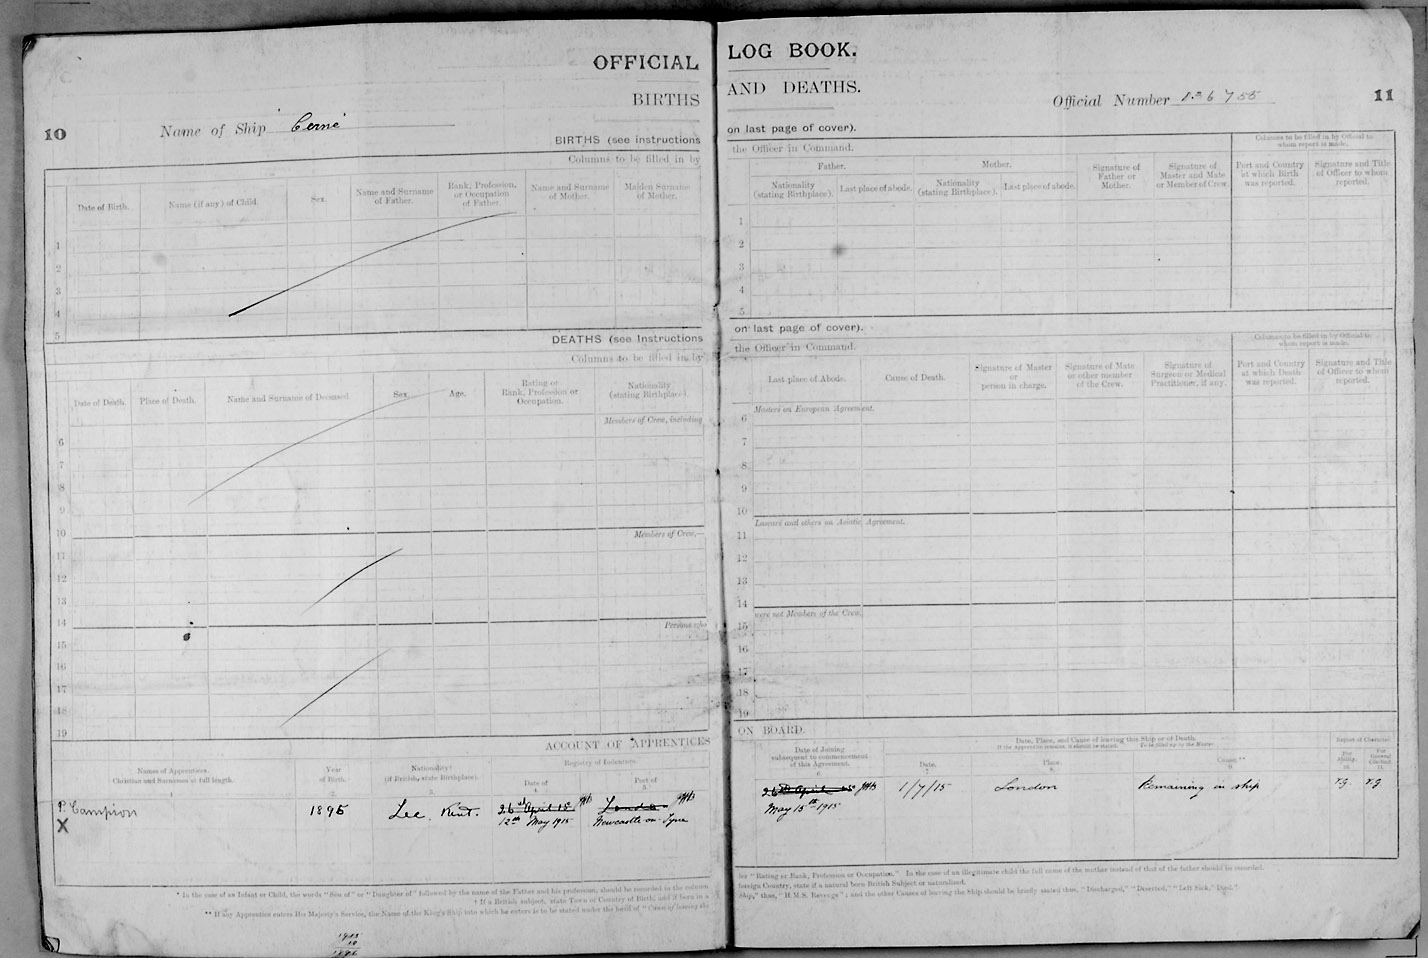 OFFICIAL LOG BOOK.
BIRTHS AND DEATHS.
10
Name of Ship Cerne
Official Number 136755
11
BIRTHS (see instructions on last page of cover).
Columns to be filled in by the Officer in Command.
Columns to be filled in by Official to whom report is made.
Date of Birth.
Name (if any) of Child.
Sex.
Name and Surname of Father.
Rank, Profession, or Occupation of Father.
Name and Surname of Mother.
Maiden Surname of Mother.
Father.
Nationality (stating Birthplace).
Last place of abode.
Mother.
Nationality (stating Birthplace).
Last place of abode.
Signature of Father or Mother.
Signature of Master and Mate or Member of Crew.
Port and Country at which Birth was reported.
Signature and Title of Officer to whom reported.
1
2
3
4
5
DEATHS (see Instructions on last page of cover).
Columns to be filled in by the Officer in Command.
Columns to be filled in by Official to whom report is made.
Date of Death.
Place of Death.
Name and Surname of Deceased.
Sex.
Age.
Rating or Rank, Profession or Occupation.
Nationality (stating Birthplace).
Last place of Abode.
Cause of Death.
Signature of Master or person in charge.
Signature of Mate or other member of the Crew.
Signature of Surgeon or Medical Practitioner, if any.
Port and Country at which Death was reported.
Signature and Title of Officer to whom reported.
Members of Crew, including Masters on European Agreement.
6
7
8
9
10
Members of Crew,— Lascars and others on Asiatic Agreement.
11
12
13
14
Persons who were not Members of the Crew.
15
16
17
18
19
ACCOUNT OF APPRENTICES ON BOARD.
Names of Apprentices.
Christian and Surnames at full length.
1.
Year of Birth.
2.
Nationality†
(if British, state Birthplace).
3.
Registry of Indenture.
Date of
4.
Port of
5.
Date of Joining subsequent to commencement of this Agreement.
6.
Date, Place, and Cause of leaving this Ship or of Death.
If the Apprentice remains, it should be stated. To be filled up by the Master.
Date.
7.
Place.
8.
Cause.**
9.
Report of Character.
For Ability.
10.
For General Conduct.
11.
P. Campion
X
1895
Lee, Kent.
26th April 15
12th May 1915
London
Newcastle on Tyne
26th April 15
May 15th 1915
1/7/15
London
Remaining in ship
V.G.
V.G.
* In the case of an Infant or Child, the words "Son of" or "Daughter of" followed by the name of the Father and his profession, should be recorded in the column for "Rating or Rank, Profession or Occupation." In the case of an illegitimate child the full name of the mother instead of that of the father should be recorded.
† If a British subject, state Town or Country of Birth, and if born in a foreign Country, state if a natural born British Subject or naturalised.
** If any Apprentice enters His Majesty's Service, the Name of the King's Ship into which he enters is to be stated under the head of "Cause of leaving the Ship," thus, "H.M.S. Revenge"; and the other Causes of leaving the Ship should be briefly stated thus, "Discharged," "Deserted," "Left Sick," Died."